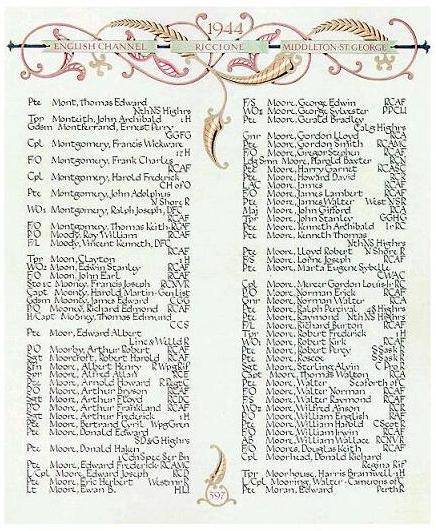 1944
ENGLISH CHANNEL
RICCIONE
MIDDLETON·ST. GEORGE
Pte Mont, Thomas Edward
NthNS Highrs
Tpr Monteith, John Archibald 1H
Gdsm Montferrand, Ernest Perry
GGFG
Cpl Montgomery, Francis Wickware
17H
F/O Montgomery, Frank Charles
RCAF
Cpl Montgomery, Harold Frederick
CH of O
Pte Montgomery, John Adolphus
N Shore R
WO1 Montgomery, Ralph Joseph, DFC
RCAF
F/O Montgomery, Thomas Keith RCAF
F/O Moody, Roy William RCAF
F/L Moody, Vincent Kenneth, DFC
RCAF
Tpr Moon, Clayton 1H
WO2 Moon, Edwin Stanley RCAF
F/O Moon, John Earl RCAF
Sto1c Mooney, Francis Joseph RCNVR
Capt Mooney, Harold Martin Gen List
Gdsm Mooney, James Edward CGG
P/O Mooney, Richard Edmond RCAF
H/Capt Mooney, Thomas Edmund
CCS
Pte Moor, Edward Albert
Linc & Welld R
P/O Moorby, Arthur Robert RCAF
Sgt Moorcroft, Robert Harold RCAF
Rfn Moore, Albert Henry R Wpg Rif
Spr Moore, Alfred Allan RCE
Pte Moore, Arnold Howard R Regt C
P/O Moore, Arthur Bryson RCAF
Sgt Moore, Arthur Floyd RCDC
P/O Moore, Arthur Frankland RCAF
Sgt Moore, Arthur Frederick 1H
Pte Moore, Bertrand Cyril WpgGren
Pte Moore, Donald Edward
SD&G Highrs
Pte Moore, Donald Haken
1 Cdn Spec Ser Bn
Pte Moore, Edward Frederick RCAMC
L/Cpl Moore, Edward Joseph RCD
Pte Moore, Eric Herbert Westmr R
Lt Moore, Ewan B. HLI
F/S Moore, George Edwin RCAF
WO2 Moore, George Sylvester PPCLI
Pte Moore, Gerald Bradley
Calg Highrs
Gnr Moore, Gordon Lloyd RCA
Pte Moore, Gordon Smith RCAMC
F/O Moore, Gregor Stephen RCAF
Ldg Smn Moore, Harold Baxter RCN
Pte Moore, Harry Garnet RCASC
Pte Moore, Howard David RCR
LAC Moore, James RCAF
F/O Moore, James Lambert RCAF
Pte Moore, James Walter West NSR
Maj Moore, John Gifford RCA
Tpr Moore, John Stanley GGHG
Pte Moore, Kenneth Archibald Ir RC
Pte Moore, Kenneth Thomas
NthNS Highrs
Pte Moore, Lloyd Robert N Shore R
F/S Moore, Lorne Joseph RCAF
Pte Moore, Marta Eugene Sybelle
CWAC
Cpl Moore, Mercer Gordon Louis Ir RC
P/O Moore, Norman Erick RCAF
Gnr Moore, Norman Walter RCA
Pte Moore, Ralph Percival 48 Highrs
Pte Moore, Raymond NthNS Highrs
F/L Moore, Richard Burton RCAF
Tpr Moore, Robert Frederick 1H
WO1 Moore, Robert Kirk RCAF
Pte Moore, Robert Percy S Sask R
Pte Moore, Roscoe S Sask R
Sgt Moore, Sterling Alvin C Pro C
Capt Moore, Thomas Walton RCA
Pte Moore, Walter Seaforth of C
F/O Moore, Walter Norman RCAF
F/S Moore, Walter Raymond RCAF
WO2 Moore, Wilfred Anson RCR
P/O Moore, William English RAF
Pte Moore, William Harold C Scot R
F/O Moore, William Irwin RCAF
AB Moore, William Wallace RCNVR
F/O Moores, Douglas Keith RCAF
Cpl Moorhead, Donald Richard
Regina Rif
Tpr Moorhouse, Harris Bramwell 1H
L/Cpl Mooring, Walter Camerons of C
Pte Moran, Edward Perth R
397